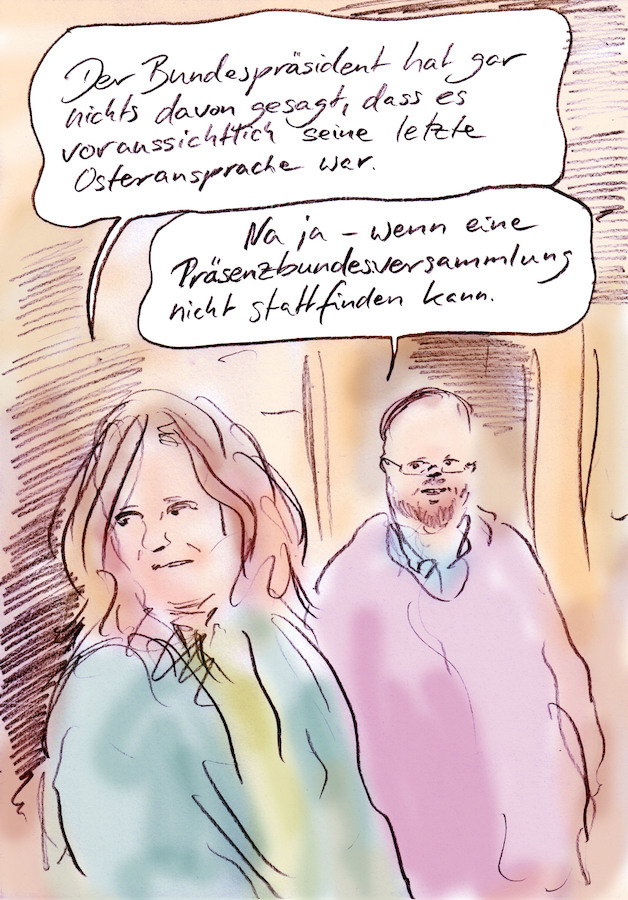 Der Bundespräsident hat gar
nichts davon gesagt, dass es
voraussichtlich seine letzte
Osteransprache war.
Na ja – wenn eine
Präsenzbundesversammlung
nicht stattfinden kann.